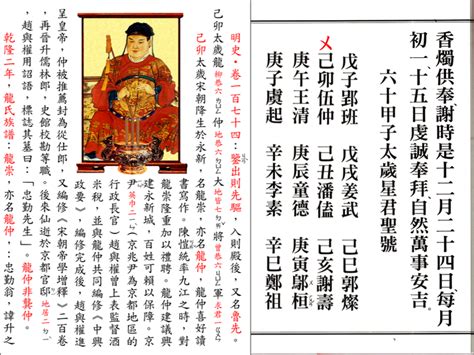 香燭供奉謝時是十二月二十四日,每月
初一十五日虔誠奉拜,自然萬事安吉。
六十甲子太歲星君聖號
戊子郢班 戊戌姜武 己巳郭燦
己卯伍仲 己丑潘儘 己亥謝壽
庚午王清 庚辰童德 庚寅鄔桓
庚子虞起 辛未李素 辛巳鄭祖
明史·卷一百七十四:鑿出則先驅,入則殿後,又名魯先。
己卯太歲龍仲大將軍
己卯太歲宋朝降生於永新,名龍崇,亦名龍仲,龍仲喜好讀
書寫作。陳愷統率九江之時,對
龍崇隆重加以禮聘。龍仲建議興
建永新城,百姓可賴以保障。京
尹(京兆尹為京都地區的
行政長官)趙與權曾上表監督酒
米稅,並與龍仲共同編修《中興
政要》,編修完成後,趙與權進
又編修《宋朝帝學增釋》二百卷
呈皇帝,仲被推薦封為從仕郎,
再晉升儒林郎,史館校勘等職。後來仙逝於京都官邸。
趙與權用詔語,標誌其墓曰:「忠勤先生」。龍仲非龔仲。
乾隆二年,龍氏族譜:龍崇,亦名龍仲,忠勤翁,諱升之